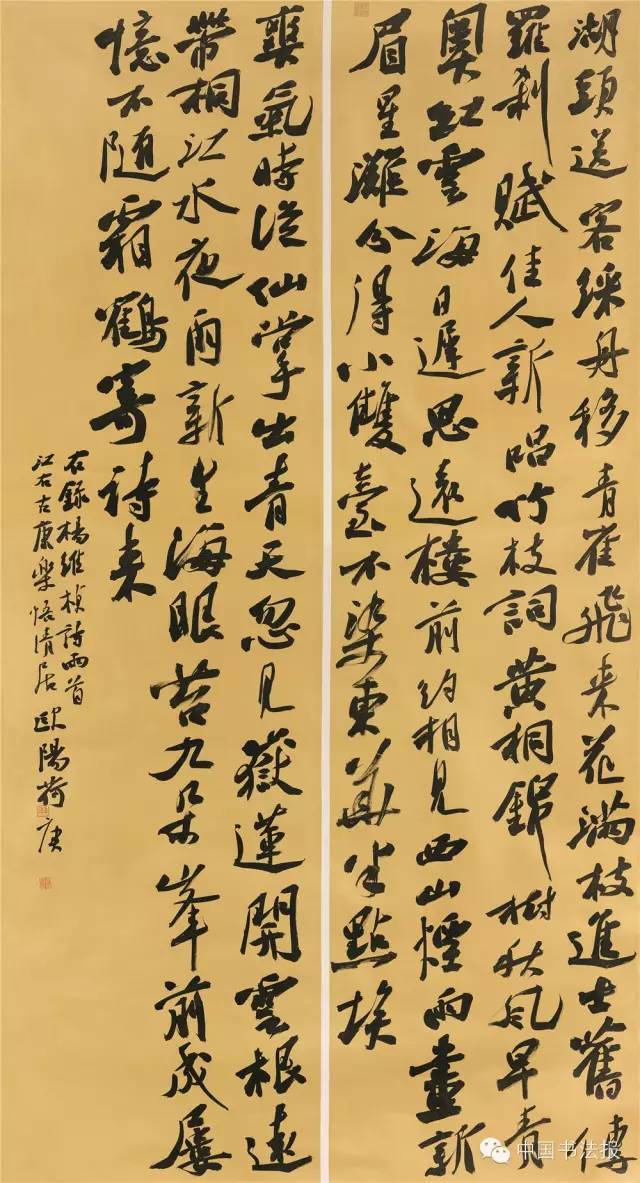 湖頭送客綵舟移青雀飛来花滿枝進士舊傳
羅刹賦佳人新唱竹枝詞黄桐錦樹秋風早責
奧紅雲海日遲思遠楼前約相見西山煙雨畫新
眉星灘分得小雙臺不染東華半點埃
爽氣時從仙掌出青天忽見嶽蓮開雲根遠
帶桐江水夜雨新生海眼苔九朵峯前成屢
憶不随霜鶴寄詩来
右録楊維楨詩兩首
江右古康樂悟清居歐陽荷庚
中国书法报